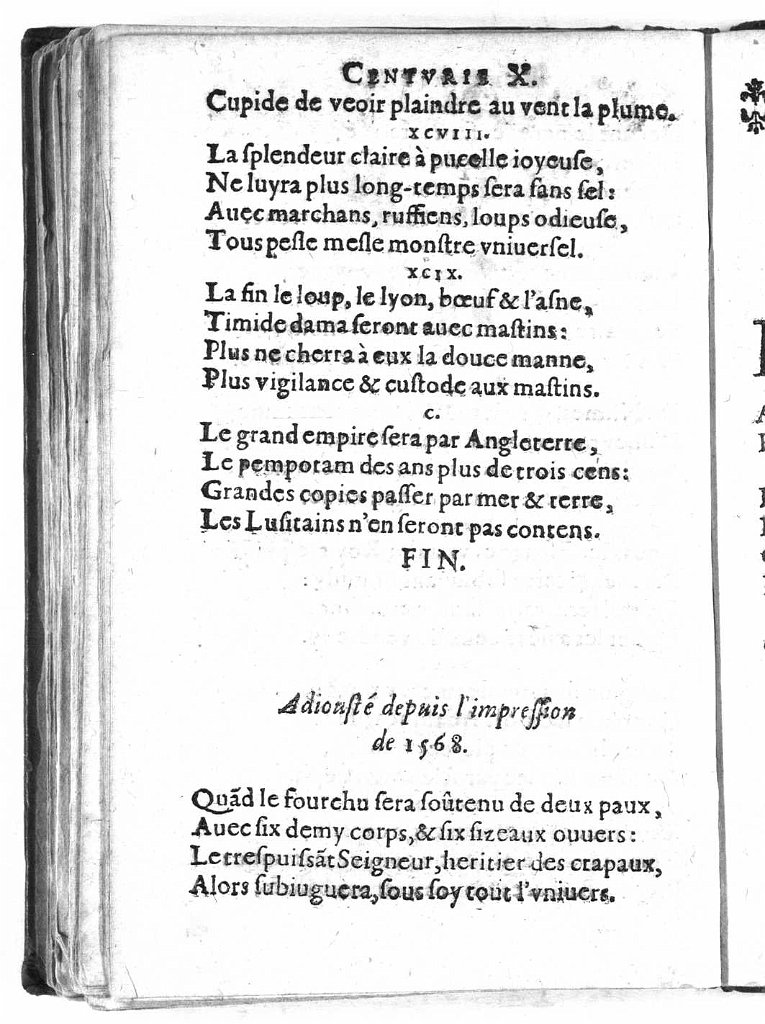 CENTVRIE X.
Cupide de veoir plaindre au vent la plume.
XCVIII.
La ſplendeur claire à pucelle ioyeuſe,
Ne luyra plus long-temps ſera ſans ſel:
Auec marchans, ruffiens, loups odieuſe,
Tous peſle meſle monſtre vniuerſel.
XCIX.
La fin le loup, le lyon, bœuf & l'aſne,
Timide dama ſeront auec maſtins:
Plus ne cherra à eux la douce manne,
Plus vigilance & cuſtode aux maſtins.
C.
Le grand empire ſera par Angleterre,
Le pempotam des ans plus de trois cens:
Grandes copies paſſer par mer & terre,
Les Luſitains n'en ſeront pas contens.
FIN.
Adiouſté depuis l'impreſſion
de 1568.
Quãd le fourchu ſera ſoûtenu de deux paux,
Auec ſix demy corps, & ſix ſizeaux ouuers:
Le treſpuiſsãt Seigneur, heritier des crapaux,
Alors ſubiuguera, ſous ſoy tout l'vniuers.